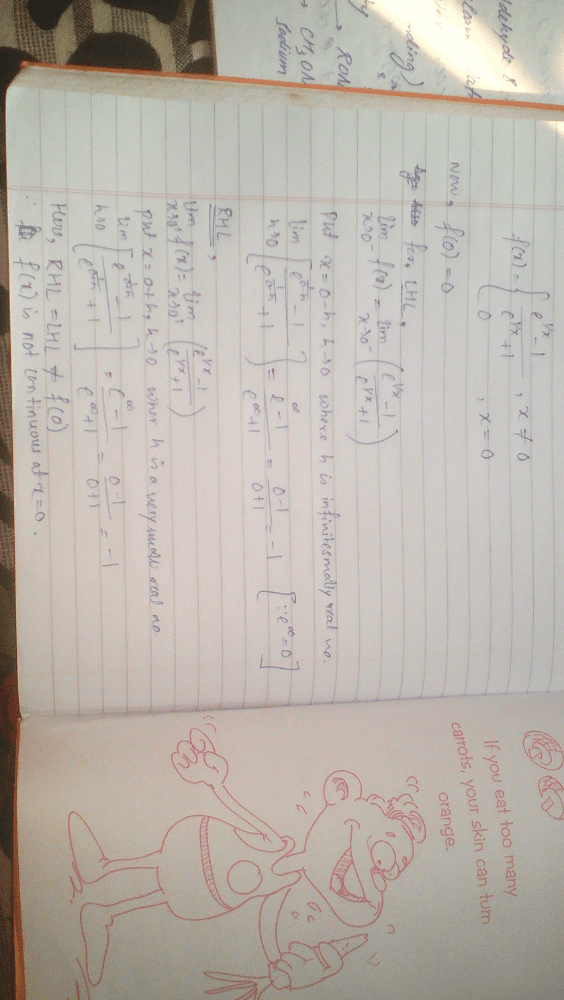 ldehyde &
nding)
→ RON
CH3ON
Sodium
f(x) = { e^1/x - 1 / e^1/x + 1 , x ≠ 0
0 , x = 0
Now, f(0) = 0
for LHL,
lim x→0- f(x) = lim x→0- ( e^1/x - 1 / e^1/x + 1 )
Put x = 0-h, h→0 where h is infinitesmally real no.
lim h→0 [ e^1/0-h - 1 / e^1/0-h + 1 ] = e^∞ - 1 / e^∞ + 1 = 0 - 1 / 0 + 1 = -1 [∵ e^∞ = 0]
RHL,
lim x→0+ f(x) = lim x→0+ ( e^1/x - 1 / e^1/x + 1 )
Put x = 0+h, h→0 wher h is a very small real no.
lim h→0 [ e^1/0+h - 1 / e^1/0+h + 1 ] = e^∞ - 1 / e^∞ + 1 = 0 - 1 / 0 + 1 = -1
Here, RHL = LHL ≠ f(0)
∴ f(x) is not continuous at x = 0.
If you eat too many
carrots, your skin can turn
orange.